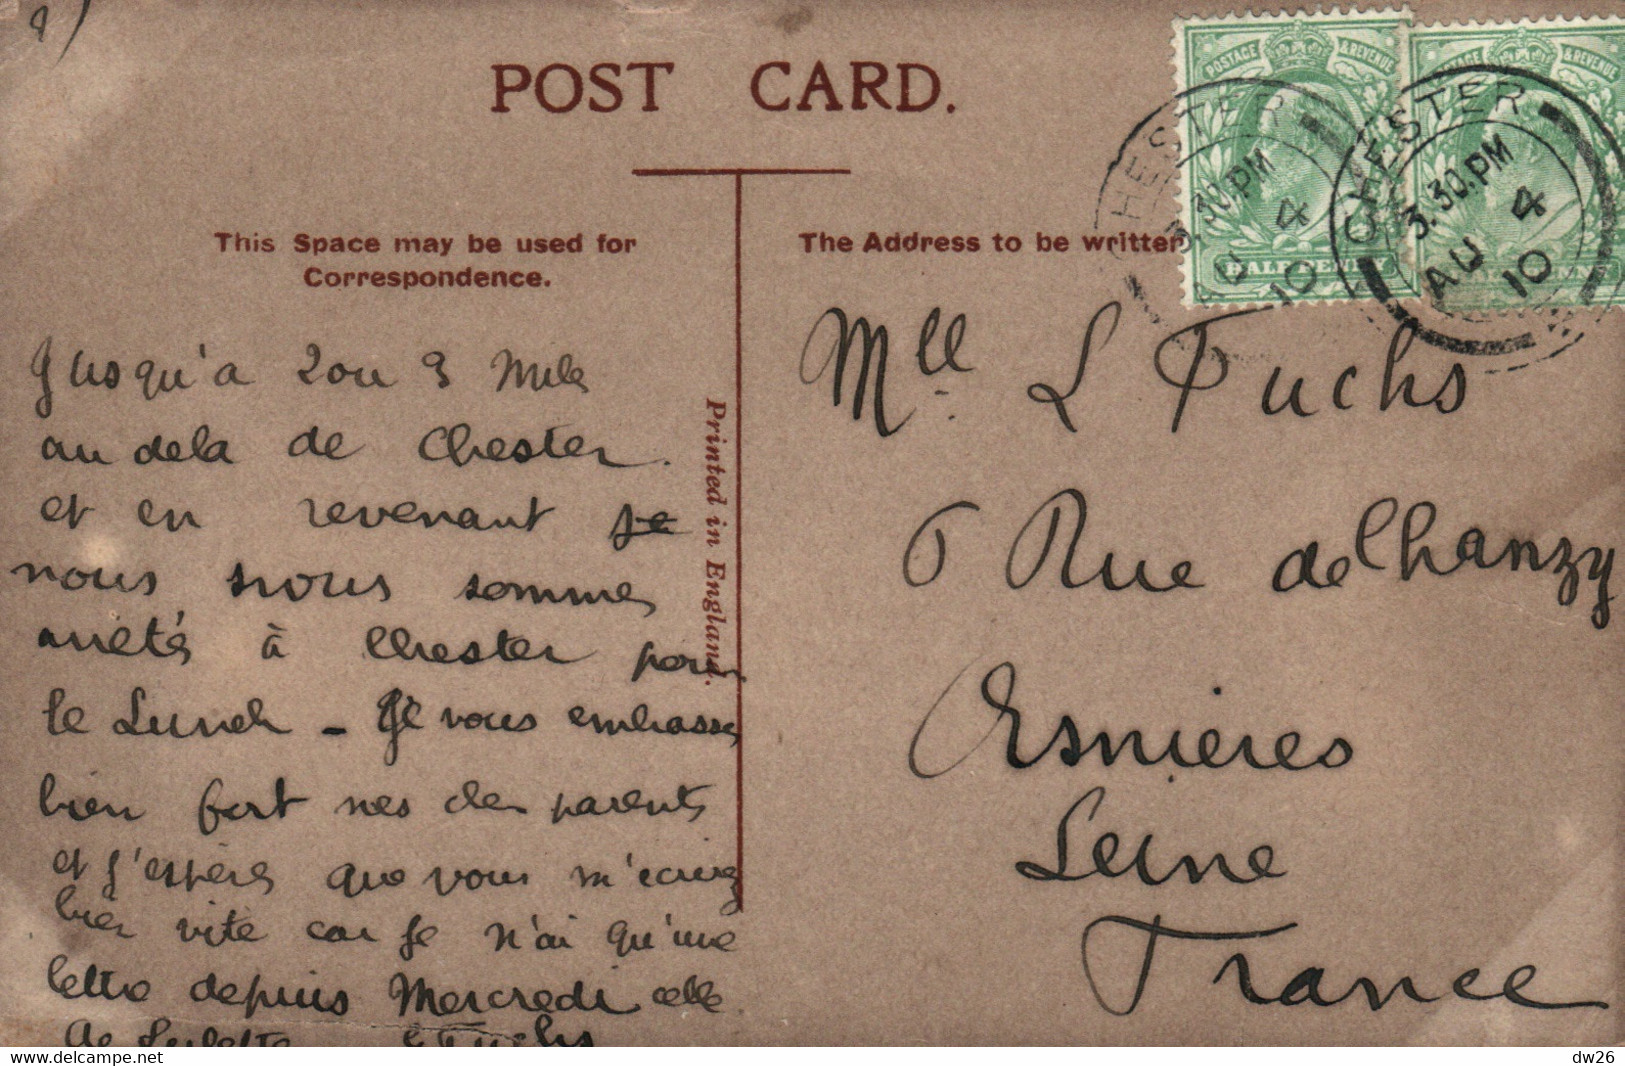 POST CARD.
This Space may be used for
Correspondence.
The Address to be written
POSTAGE & REVENUE
HALF PENNY
CHESTER
3.30.PM
AU 4
10
CHESTER
3.30.PM
AU 4
10
Printed in England.
Jusqu'a 2 ou 3 Mils
au dela de Chester.
et en revenant se
nous nous sommes
arretés à Chester pour
le Lunch - Je vous embrasse
bien fort mes chers parents
et j'espère que vous m'écrirez
bien vite car je n'ai qu'une
lettre depuis Mercredi celle
de L Fuchs
Mlle L Fuchs
6 Rue de Chanzy
Asnieres
Seine
France
dw26